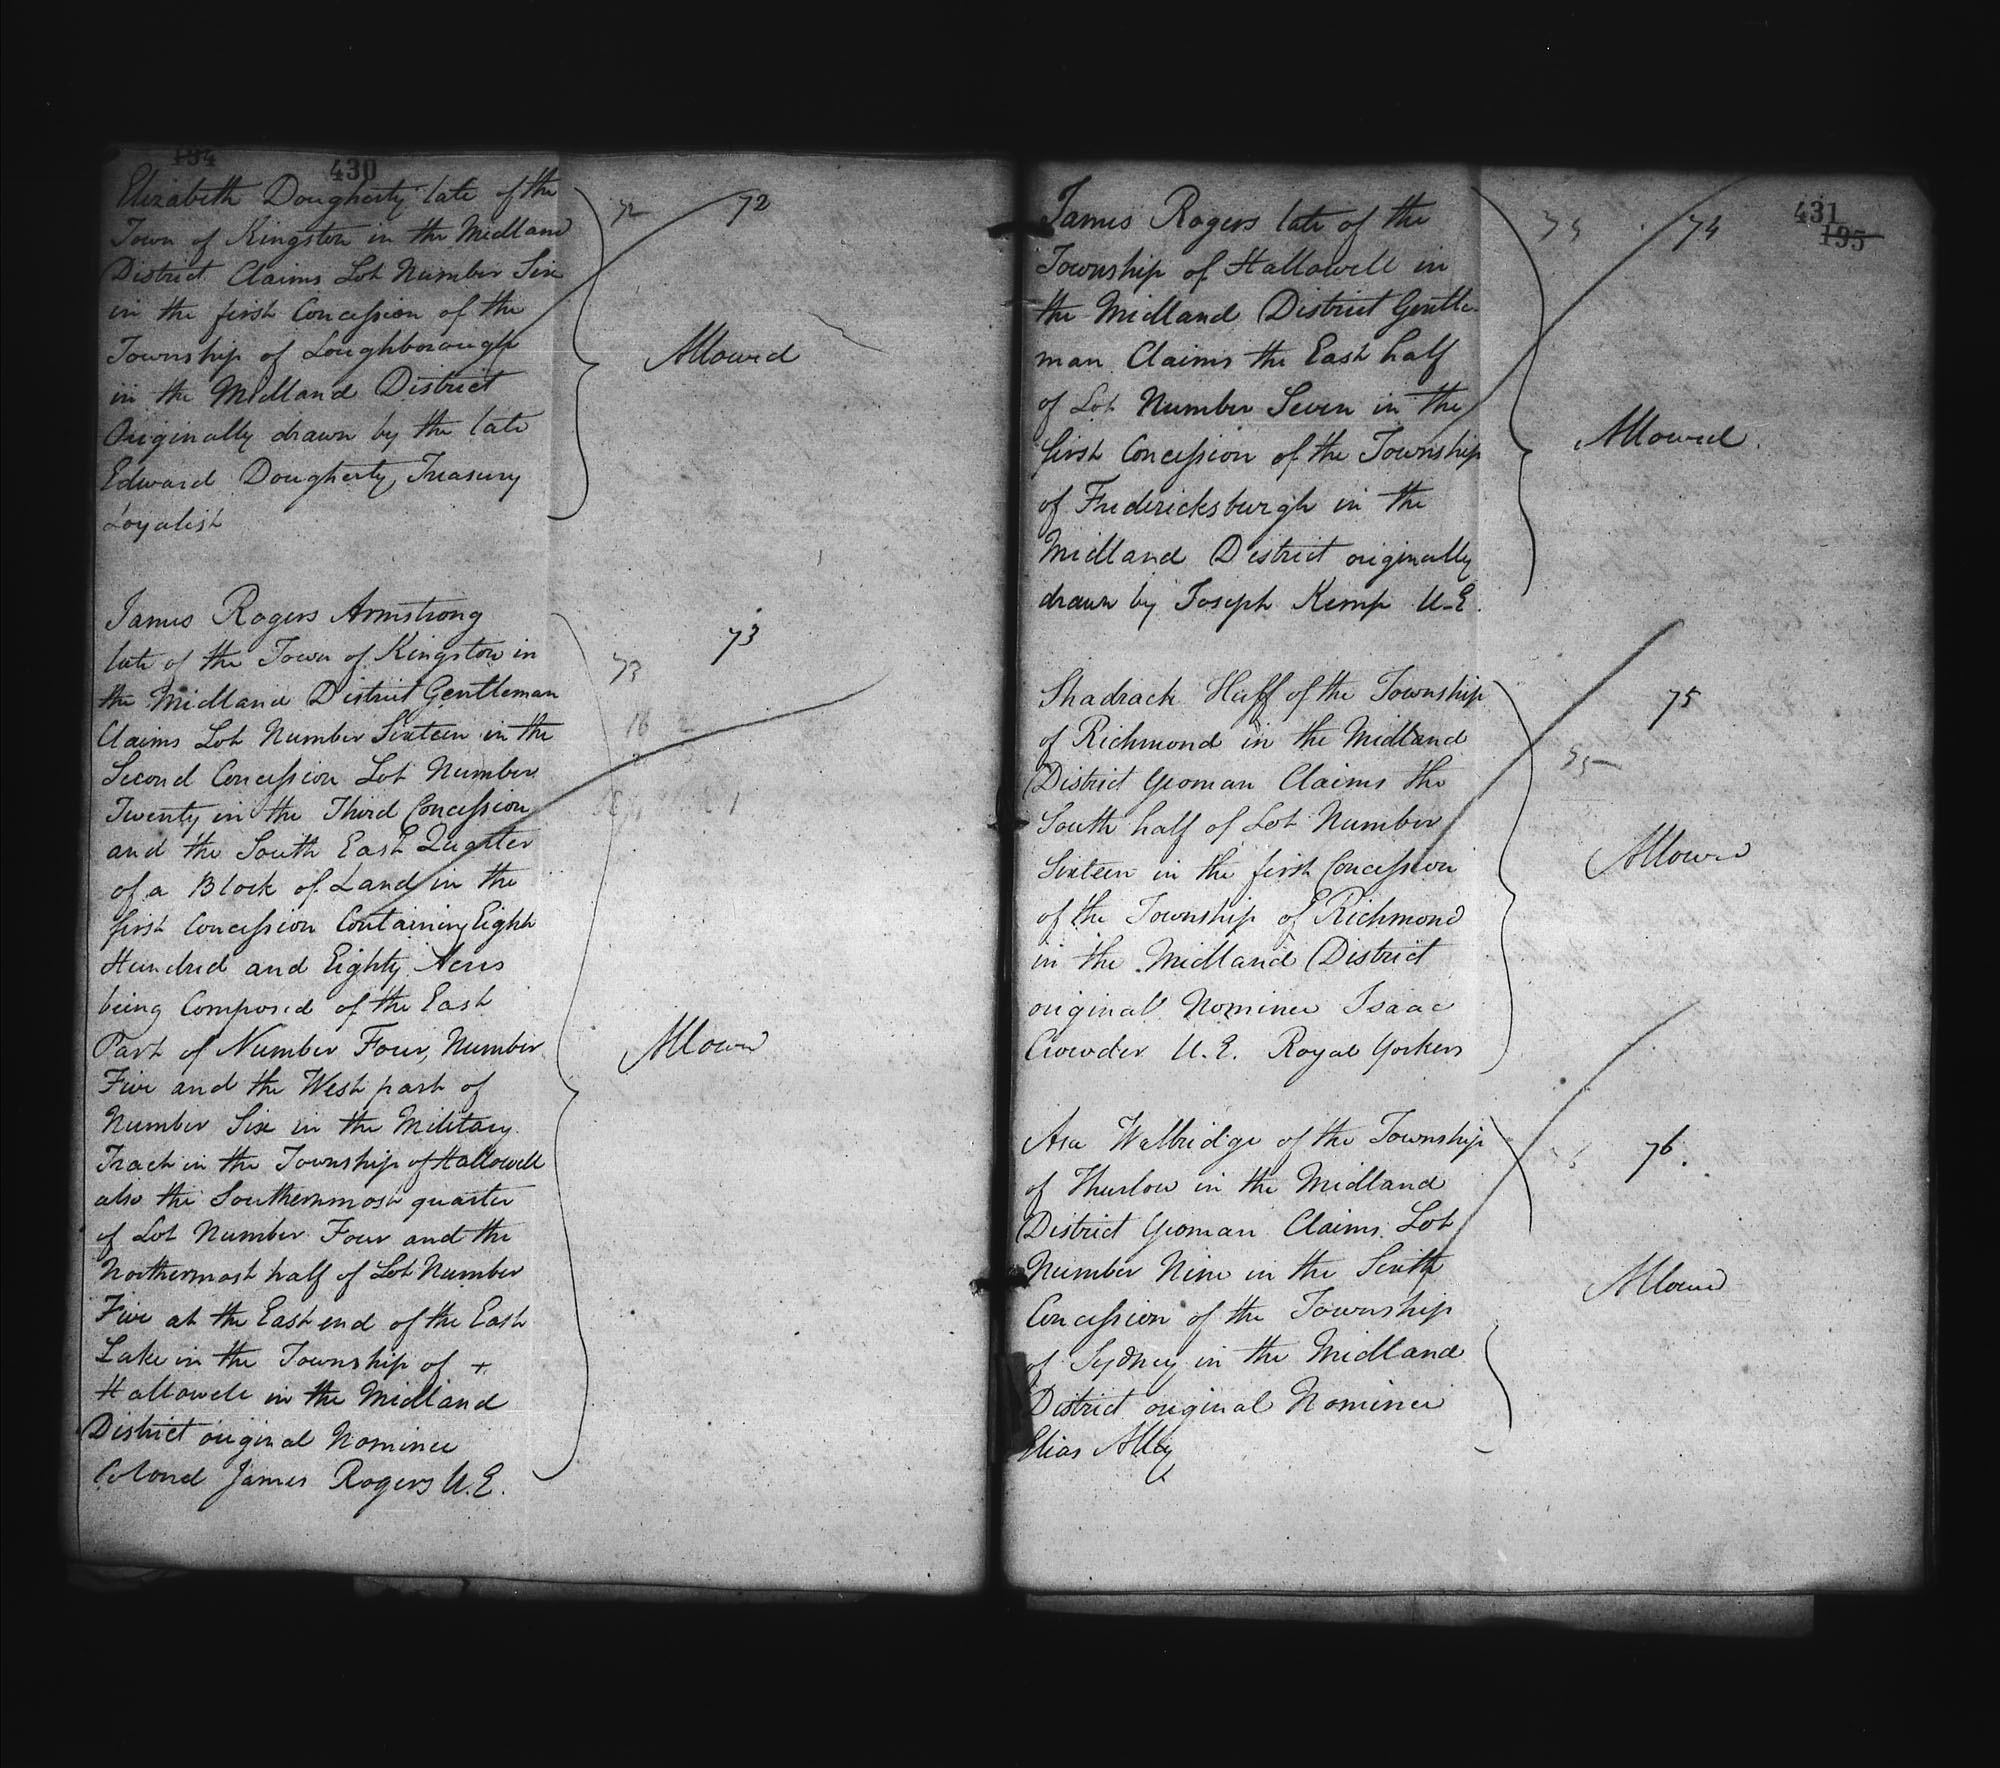 134
430
Elizabeth Dougherty late of the
Town of Kingston in the Midland
District Claims Lot Number Six
in the first Concession of the
Township of Loughborough
in the Midland District
Originally drawn by the late
Edward Dougherty, Treasury
Loyalist
72 72
Allowed
James Rogers Armstrong
late of the Town of Kingston in
the Midland District Gentleman
Claims Lot Number Sixteen in the
Second Concession Lot Number
Twenty in the Third Concession
and the South East Quarter
of a Block of Land in the
first Concession Containing Eight
Hundred and Eighty Acres
being Composed of the East
Part of Number Four, Number
Five and the West part of
Number Six in the Military
Tract in the Township of Hallowell
also the Southernmost quarter
of Lot Number Four and the
Northermost half of Lot Number
Five at the East end of the East
Lake in the Township of +
Hallowell in the Midland
District original Nominee
Colonel James Rogers U.E.
73 73
16 2
Allowed
431
195
James Rogers late of the
Township of Hallowell in
the Midland District Gentle-
man Claims the East half
of Lot Number Seven in the
first Concession of the Township
of Fredericksburgh in the
Midland District originally
drawn by Joseph Kemp U.E.
74 74
Allowed.
Shadrack Huff of the Township
of Richmond in the Midland
District Yeoman Claims the
South half of Lot Number
Sixteen in the first Concession
of the Township of Richmond
in the Midland District
original Nominee Isaac
Crowder U.E. Royal Yorkers
75
75
Allowed
Asa Wallbridge of the Township
of Thurlow in the Midland
District Yeoman Claims Lot
Number Nine in the Sixth
Concession of the Township
of Sydney in the Midland
District original Nominee
Elias Alley
76.
Allowed